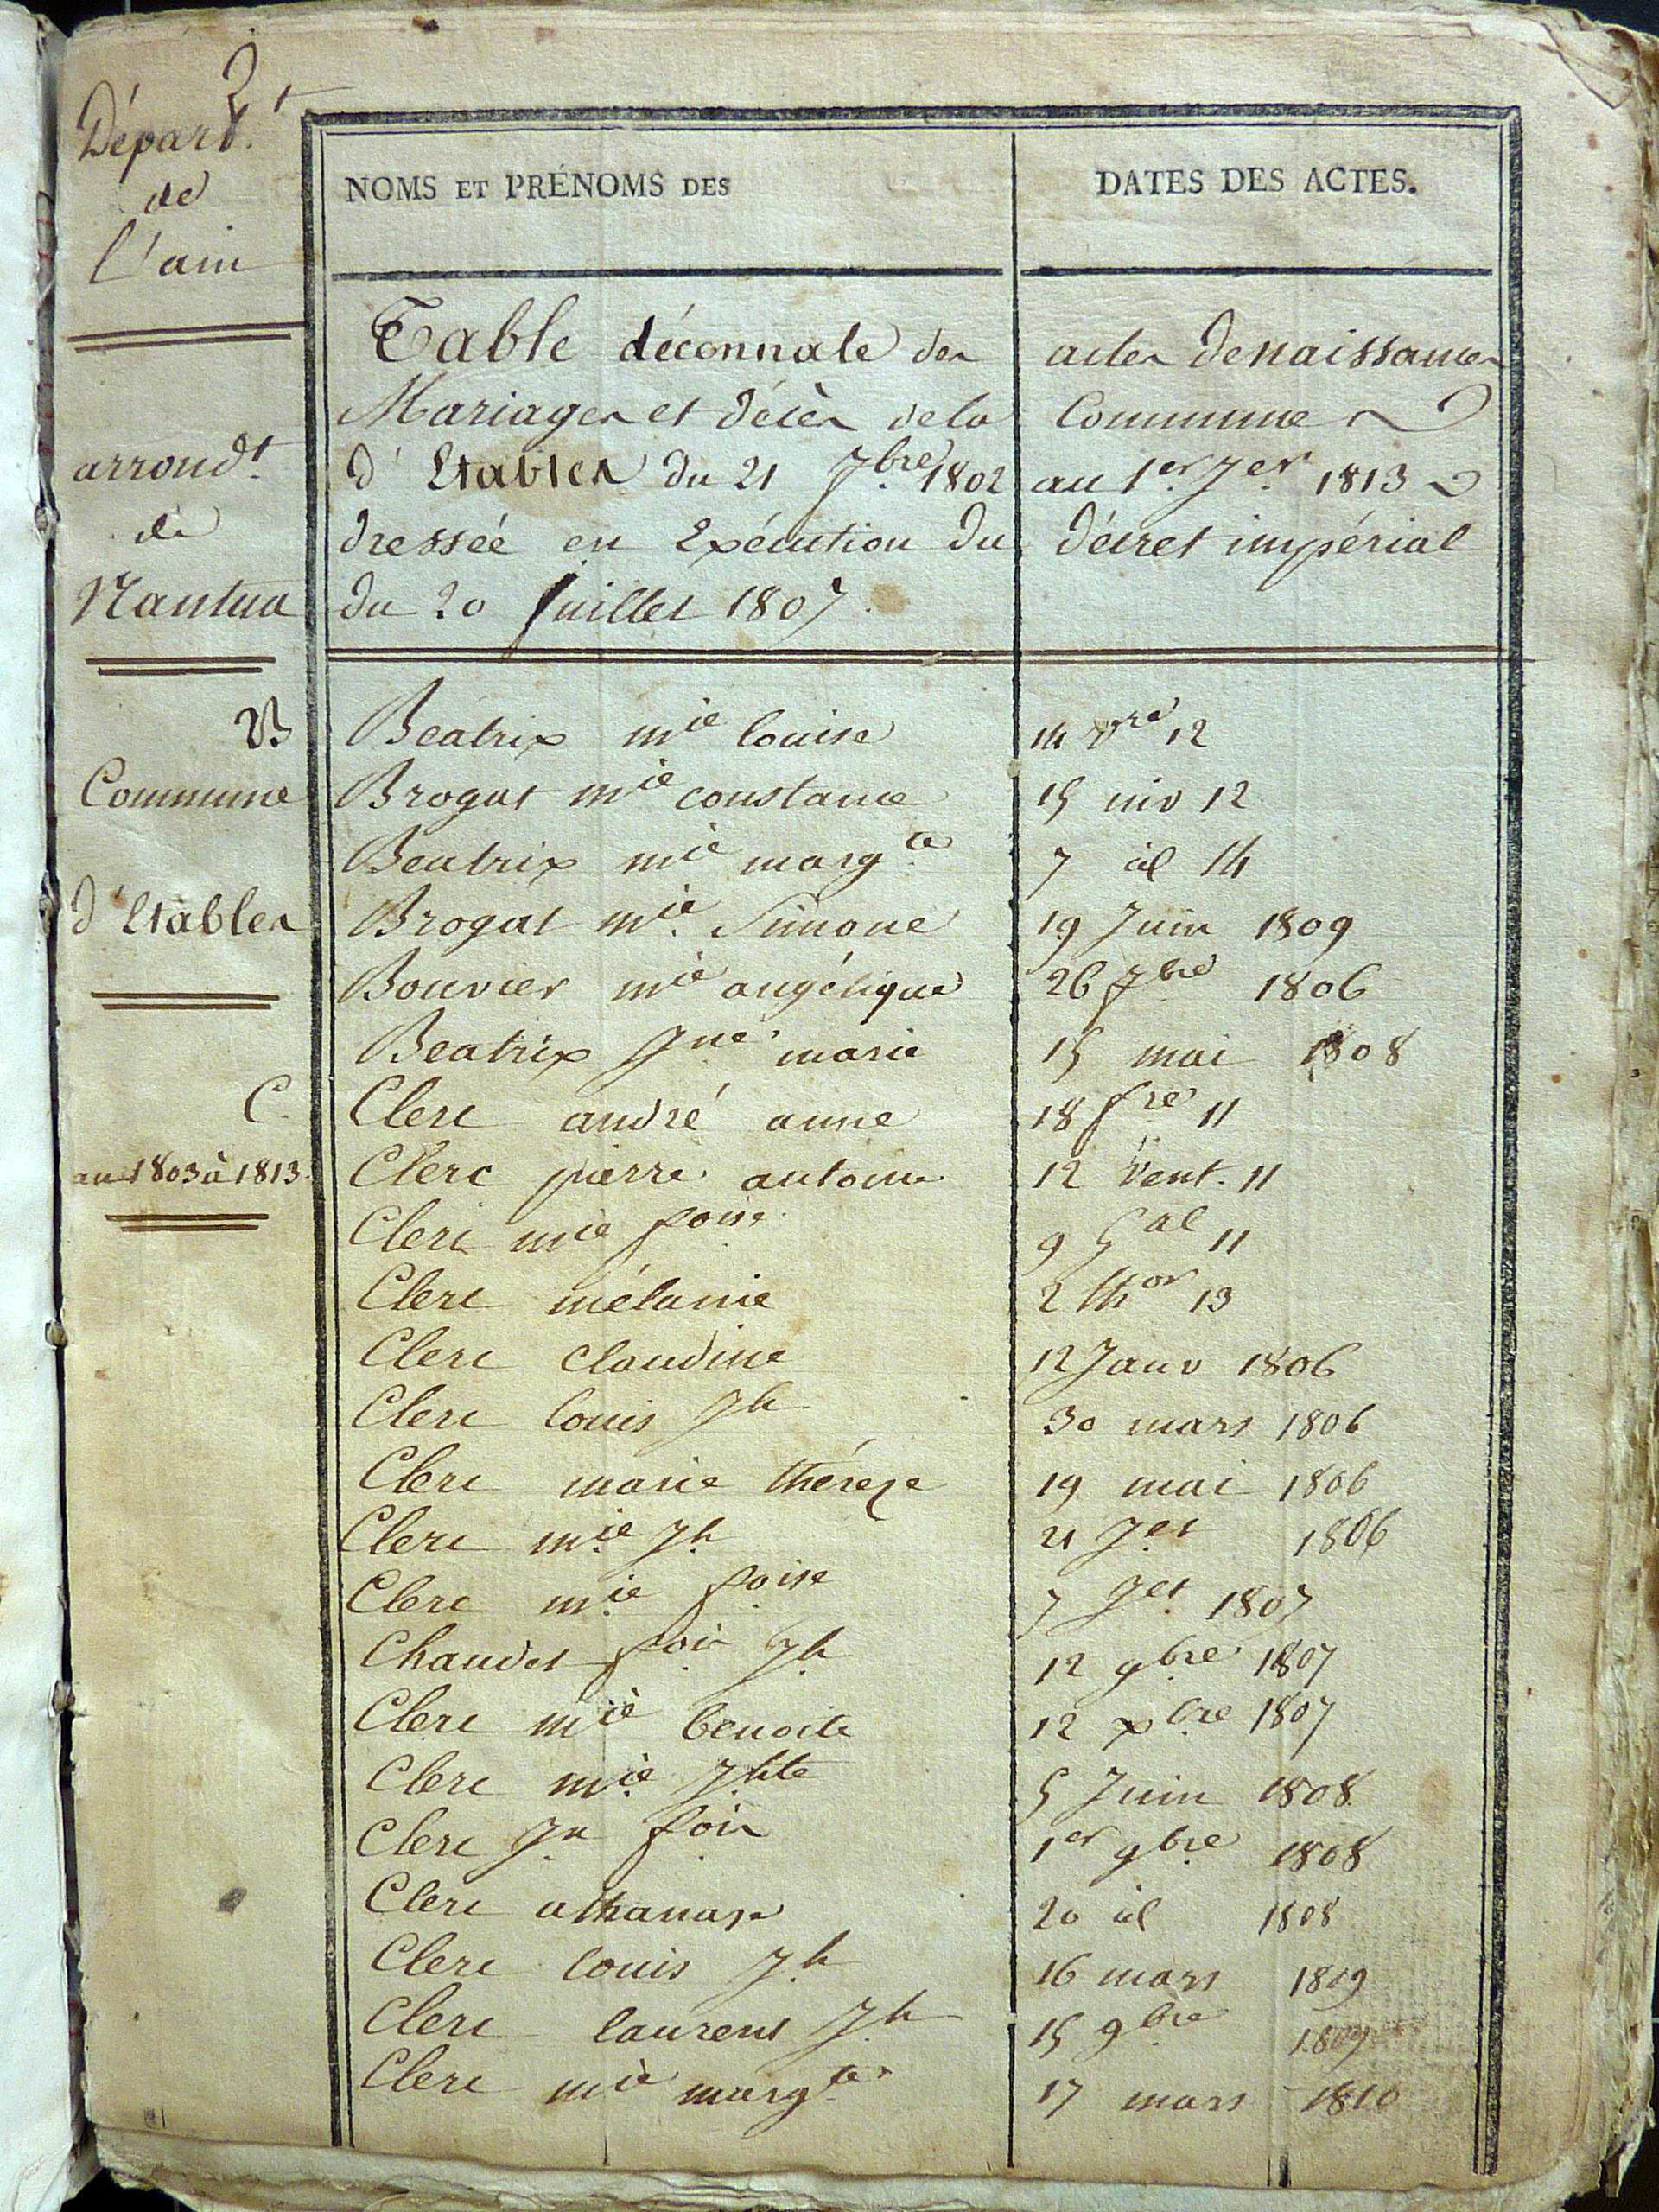 2
Départ.t
de
l'ain
arrond.t
de
Nantua
B
Commune
d'Etables
C.
an 1803 à 1813.
NOMS ET PRÉNOMS DES DATES DES ACTES.
Table décennale des actes de naissances
Mariages et décès de la Commune
d'Etables du 21 7bre 1802 au 1er Jer 1813
dressée en Exécution du décret impérial
du 20 Juillet 1807.
Beatrix mie louise 14 vre 12
Brogat mie constance 15 niv 12
Beatrix mie marg.te 7 id 14
Brogat mie Simone 19 Juin 1809
Bouvier mie angélique 26 7bre 1806
Beatrix Jne marie 15 mai 1808
Clerc andré anne 18 fre 11
Clerc pierre antoine 12 Vent. 11
Clerc mie foise 9 Gal 11
Clerc mélanie 2 thor 13
Clerc claudine 12 Janv 1806
Clerc louis Jh 30 mars 1806
Clerc marie thérèze 19 mai 1806
Clerc mie Jh 21 Jet 1806
Clerc mie foise 7 Jet 1807
Chaudet fois Jh 12 9bre 1807
Clerc mie benoite 12 xbre 1807
Clerc mie Jhte 5 Juin 1808
Clerc Jn fois 1er 9bre 1808
Clerc athanase 20 id 1808
Clerc louis Jh 16 mars 1809
Clerc laurent Jh 15 9bre 1809
Clerc mie marg.te 17 mars 1810